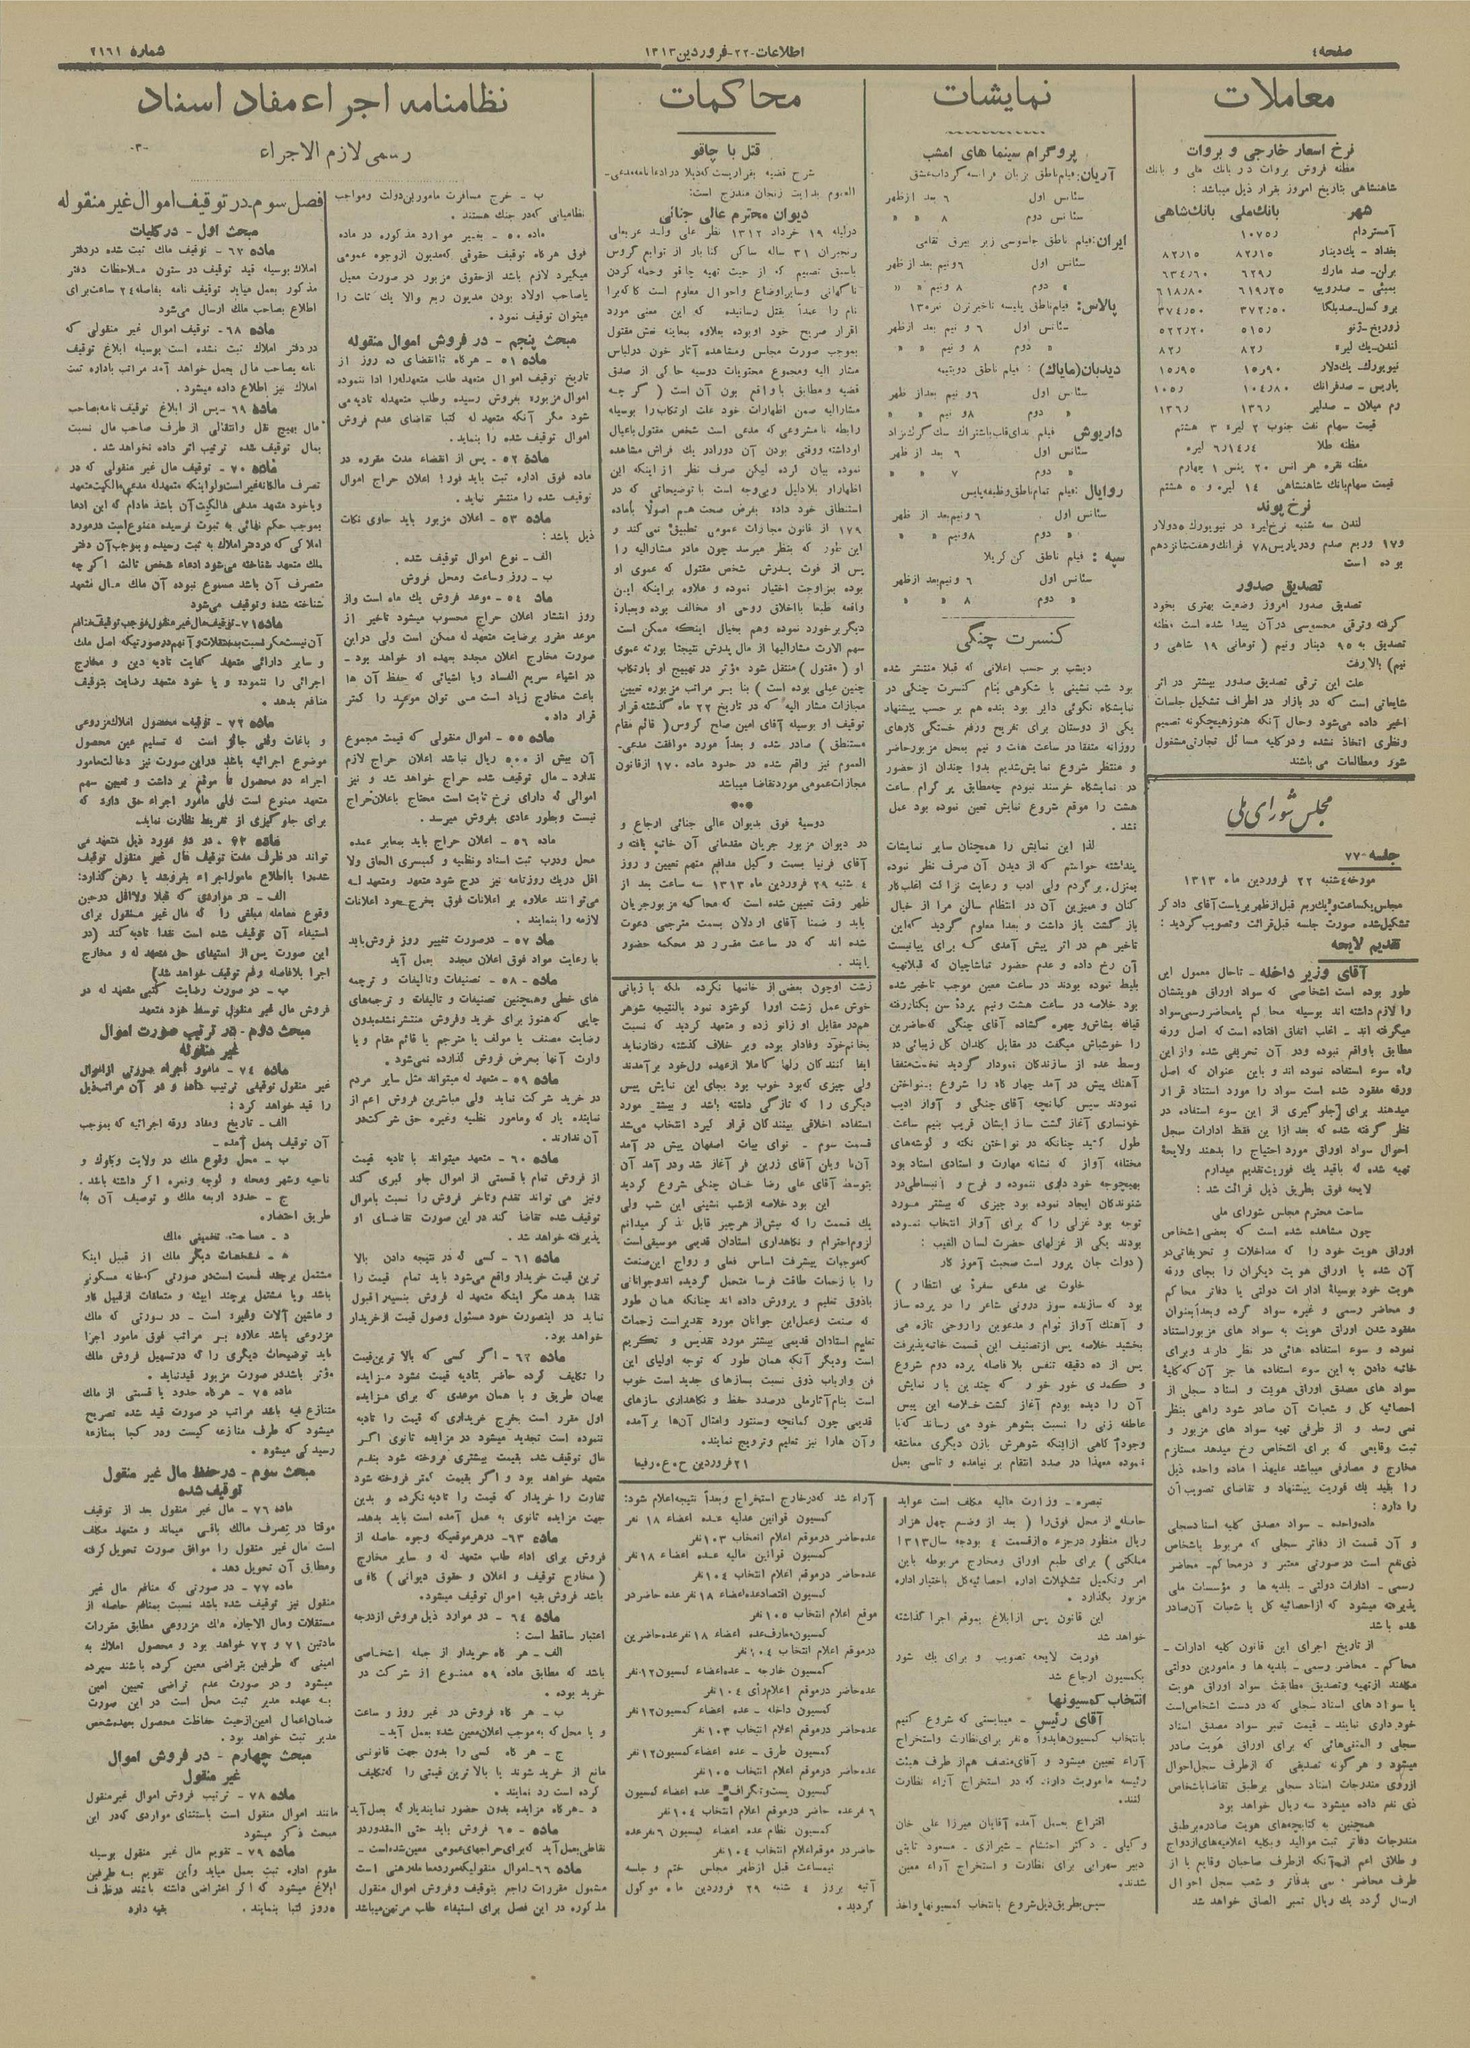 صفحه ٤
اطلاعات-۲۲-فروردین ۱۳۱۳
شماره ۲۱۶۱
معاملات
نرخ اسعار خارجی و بروات
مظنه فروش بروات در بانك ملی و بانك
شاهنشاهی بتاریخ امروز بقرار ذیل میباشد :
شهر بانك ملی بانك شاهی
آمستردام ۱۰۷۵ر
بغداد - یكدینار ۸۲ر۱۵ ۸۲ر۱۵
برلن - صد مارك ۶۲۹ر ۶۳٤ر۶۰
بمبئی - صدروپیه ۶۱۹ر۲۵ ۶۱۸ر۸۰
بروكسل-صدبلگا ۳۷۲ر۵۰ ۳۷٤ر۵۰
لندن-یك لیره ۸۲ر ۸۲ر
نیویورك-یكدلار ۱۵ر۹۰ ۱۵ر۹۵
پاریس - صدفرانك ۱۰٤ر۸۰ ۱۰۵ر
رم میلان - صدلیر ۱۳۶ر ۱۳۶ر
قیمت سهام نفت جنوب ۲ لیره ۳ هشتم
مظنه طلا ۶ر۱٤ر٤ لیره
مظنه نقره هر انس ۲۰ پنس ۱ چهارم
قیمت سهام بانك شاهنشاهی ۱٤ لیره و ۵ هشتم
نرخ پوند
لندن سه شنبه نرخ لیره در نیویورك ۵دولار
و۱۷ وربع صدم ودرپاریس ۷۸ فرانك وهفت شانزدهم
بوده است
تصدیق صدور
تصدیق صدور امروز وضعیت بهتری بخود
گرفته وترقی محسوسی درآن پیدا شده است مظنه
تصدیق به ۹۵ دینار ونیم ( تومانی ۱۹ شاهی و
نیم) بالا رفت
علت این ترقی تصدیق صدور بیشتر در اثر
شایعاتی است كه در بازار در اطراف تشكیل جلسات
اخیر داده می‌شود وحال آنكه هنوز هیچگونه تصمیم
ونظری اتخاذ نشده و دركلیه مسائل تجارتی مشغول
شور ومطالعات می‌باشند
مجلس شورای ملی
جلسه -۷۷
مورخه ٤شنبه ۲۲ فروردین ماه ۱۳۱۳
مجلس یكساعت و یك ربع قبل از ظهر بریاست آقای دادگر
تشكیل شده صورت جلسه قبل قرائت و تصویب گردید :
تقدیم لایحه
آقای وزیر داخله - تاحال معمول این
طور بوده است اشخاصی كه سواد اوراق هویتشان
میگرفته اند - اغلب اتفاق افتاده است كه اصل ورقه
مطابق باواقع نبوده ودر آن تحریفی شده وازاین
راه سوء استفاده نموده اند و باین عنوان كه اصل
ورقه مفقود شده است سواد را مورد استناد قرار
میدهند برای جلوگیری از این سوء استفاده در
نظر گرفته شده كه بعد ازاین فقط ادارات سجل
احوال سواد اوراق مورد احتیاج را بدهند ولایحهٔ
تهیه شده كه باقید یك فوریت تقدیم میدارم
لایحه فوق بطریق ذیل قرائت شد :
ساحت محترم مجلس شورای ملی
چون مشاهده شده است كه بعضی اشخاص
اوراق هویت خود را كه مداخلات و تحریفاتی در
آن شده یا اوراق هویت دیگران را بجای ورقه
هویت خود بوسیلهٔ ادارات دولتی یا دفاتر محاكم
و محاضر رسمی و غیره سواد كرده وبعداً بعنوان
مفقود شدن اوراق هویت به سواد های مزبور استناد
نموده و سوء استفاده هائی در نظر دارند وبرای
خاتمه دادن به این سوء استفاده ها جز آن كه كلیهٔ
سواد های مصدق اوراق هویت و اسناد سجلی از
احصائیه كل و شعبات آن صادر شود راهی بنظر
نمی رسد و از طرفی تهیه سواد های مزبور و
ثبت وقایعی كه برای اشخاص رخ میدهد مستلزم
مخارج و مصارفی میباشد علیهذا ماده واحده ذیل
را بقید یك فوریت پیشنهاد و تقاضای تصویب آن
را دارد :
ماده واحده - سواد مصدق كلیه اسناد سجلی
و آن قسمت از دفاتر سجلی كه مربوط باشخاص
ذی‌نفع است در صورتی معتبر و در محاكم - محاضر
رسمی - ادارات دولتی - بلدیه ها و مؤسسات ملی
پذیرفته میشود كه از احصائیه كل یا شعبات آن صادر
شده باشد
از تاریخ اجرای این قانون كلیه ادارات -
محاكم - محاضر رسمی - بلدیه ها و مامورین دولتی
مكلفند از تهیه وتصدیق مطابقت سواد اوراق هویت
یا سواد های اسناد سجلی كه در دست اشخاص است
خود داری نمایند - قیمت تمبر سواد مصدق اسناد
سجلی و المثنی‌هائی كه برای اوراق هویت صادر
میشود و هر گونه تصدیقی كه از طرف سجل احوال
از روی مندرجات اسناد سجلی بر طبق تقاضا باشخاص
ذی نفع داده میشود سه ریال خواهد بود
همچنین به كتابچه‌های هویت صادره بر طبق
مندرجات دفاتر ثبت موالید و بكلیه اعلامیه های ازدواج
و طلاق اعم از آنكه از طرف صاحبان وقایع یا از
طرف محاضر رسمی بدفاتر و شعب سجل احوال
ارسال گردد یك ریال تمبر الصاق خواهد شد
نمایشات
پروگرام سینما های امشب
آریان: فیلم ناطق بزبان فرانسه گرداب عشق
سئانس اول ۶ بعد از ظهر
سئانس دوم ۸ » »
ایران: فیلم ناطق جاسوسی زیر بیرق نظامی
سئانس اول ۶ ونیم بعد از ظهر
» دوم ۸ ونیم » »
پالاس: فیلم ناطق پلیسه تاخیر ترن نمره ۱۳
سئانس اول ۶ و نیم بعد از ظهر
» دوم ۸ ونیم » »
دیدبان(مایاك) : فیلم ناطق دوبتیمه
سئانس اول ۶ ونیم بعد از ظهر
» دوم ۸ ونیم » »
داریوش فیلم ندای قلب باشتراك سگ گرگ نژاد
سئانس اول ۶ بعد از ظهر
» دوم ۷ » »
روایال: فیلم تمام ناطق وظیفه پلیس
سئانس اول ۶ ونیم بعد از ظهر
» دوم ۸ ونیم » »
سپه : فیلم ناطق كن گریلا
سئانس اول ۶ ونیم بعد از ظهر
» دوم ۸ » »
كنسرت چنگی
دیشب بر حسب اعلانی كه قبلا منتشر شده
بود شب نشینی با شكوهی بنام كنسرت چنگی در
نمایشگاه نكوئی دایر بود بنده هم بر حسب پیشنهاد
یكی از دوستان برای تفریح ورفع خستگی كارهای
روزانه متفقا در ساعت هفت و نیم بمحل مزبور حاضر
و منتظر شروع نمایش شدیم بدواً چندان از حضور
در نمایشگاه خرسند نبودم چه مطابق پرگرام ساعت
هشت را موقع شروع نمایش تعیین نموده بود عمل
نشد .
لذا این نمایش را همچنان سایر نمایشات
پنداشته خواستم كه از دیدن آن صرف نظر نموده
بمنزل برگردم ولی ادب و رعایت نزاكت اغلب كار
كنان و ممیزین آن در انتظام سالن مرا از خیال
باز گشت باز داشت و بعداً معلوم گردید كه این
تاخیر هم در اثر پیش آمدی كه برای پیانیست
آن رخ داده و عدم حضور تماشاچیان كه قبلا تهیه
بلیط نموده بودند در ساعت معین موجب تاخیر شده
بود خلاصه در ساعت هشت ونیم پردهٔ سن بكنار رفته
قیافه بشاش و چهره گشاده آقای چنگی كه حاضرین
را خوشباش میگفت در مقابل گلدان گل زیبائی در
وسط عده از سازندگان نمودار گردید نخست متفقا
آهنگ پیش در آمد چهار گاه را شروع بنواختن
نمودند سپس كمانچه آقای چنگی و آواز ادیب
خونساری آغاز گشت ساز ایشان قریب بنیم ساعت
طول كشید چنانكه در نواختن نكته و گوشه‌های
مختلفه آواز كه نشانه مهارت و استادی استاد بود
بهیچوجه خود داری ننموده و فرح و انبساطی در
شنوندگان ایجاد نموده بود چیزی كه بیشتر مورد
توجه بود غزلی را كه برای آواز انتخاب نموده
بودند یكی از غزلهای حضرت لسان الغیب :
(دولت جان پرور است صحبت آموز گار
خلوت بی مدعی سفرهٔ بی انتظار )
بود كه سازنده سوز درونی شاعر را در پرده ساز
و آهنگ آواز توام و مدعوین را روحی تازه می
بخشید خلاصه پس از تصنیف این قسمت خاتمه پذیرفت
پس از ده دقیقه تنفس بلا فاصله پرده دوم شروع
و كمدی خور خور كه چندین بار نمایش
آن را دیده بودم آغاز گشت خلاصه این پیس
عاطفه زنی را نسبت بشوهر خود می رساند كه با
وجود آگاهی از اینكه شوهرش بازن دیگری معاشقه
نموده معهذا در صدد انتقام بر نیامده و تاسی بعمل
تبصره - وزارت مالیه مكلف است عواید
حاصله از محل فوق را ( بعد از وضع چهل هزار
ریال منظور در جزء ۵از قسمت ٤ بودجه سال ۱۳۱۳
مملكتی ) برای طبع اوراق ومخارج مربوطه باین
امر وتكمیل تشكیلات اداره احصائیه كل باختیار اداره
مزبور بگذارد .
این قانون پس از ابلاغ بموقع اجرا گذاشته
خواهد شد
فوریت لایحه تصویب و برای یك شور
بكمسیون ارجاع شد
انتخاب كمسیونها
آقای رئیس - میبایستی كه شروع كنیم
بانتخاب كمسیون‌ها بدواً ۵ نفر برای نظارت و استخراج
آراء تعیین میشود و آقای منصف هم از طرف هیئت
رئیسه ماموریت دارند كه در استخراج آراء نظارت
كنند .
اقتراع بعمل آمده آقایان میرزا علی خان
وكیلی - دكتر احتشام - شیرازی - مسعود ثابتی
دبیر سهرابی برای نظارت و استخراج آراء معین
شدند .
سپس بطریق ذیل شروع بانتخاب كمسیونها و اخذ
محاكمات
قتل با چاقو
شرح قضیه بقراریست كه ذیلا در ادعا نامه مدعی-
العموم بدایت زنجان مندرج است :
دیوان محترم عالی جنائی
درلیله ۱۹ خرداد ۱۳۱۲ نظر علی ولد عربعلی
رنجبران ۳۱ ساله ساكن كنا باز از توابع گروس
باسبق تصمیم كه از حیث تهیه چاقو وحمله كردن
ناگهانی وسایر اوضاع و احوال معلوم است كاكه برا
نام را عمداً بقتل رسانیده كه این معنی مورد
اقرار صریح خود او بوده بعلاوه بمعاینه نعش مقتول
بموجب صورت مجلس ومشاهده آثار خون درلباس
مشار الیه ومجموع محتویات دوسیه حاكی از صدق
قضیه ومطابق با واقع بودن آن است ( گر چه
مشارالیه ضمن اظهارات خود علت ارتكاب را بوسیله
رابطه نا مشروعی كه مدعی است شخص مقتول با عیال
او داشته و وقتی بودن آن دو را در یك فراش مشاهده
نموده بیان كرده لیكن صرف نظر از اینكه این
اظهار او بلا دلیل وبی وجه است با توضیحاتی كه در
استنطاق خود داده بفرض صحت هم اصولا با ماده
۱۷۹ از قانون مجازات عمومی تطبیق نمی كند و
این طور كه بنظر میرسد چون مادر مشارالیه را
پس از فوت پدرش شخص مقتول كه عموی او
بوده بمزاوجت اختیار نموده و علاوه بر اینكه این
واقعه طبعا با اخلاق روحی او مخالف بوده وبعبارهٔ
دیگر برخورد نموده وهم بخیال اینكه ممكن است
سهم الارث مشارالیها از مال پدرش نتیجتاً بورثه عموی
او ( مقتول ) منتقل شود مؤثر در تهییج او بارتكاب
چنین عملی بوده است ) بنا بر مراتب مزبوره تعیین
مجازات مشار الیه كه در تاریخ ۲۲ ماه گذشته قرار
توقیف او بوسیله آقای امین صلح گروس ( قائم مقام
مستنطق ) صادر شده و بعداً مورد موافقت مدعی-
العموم نیز واقع شده در حدود ماده ۱۷۰ از قانون
مجازات عمومی مورد تقاضا میباشد
دوسیهٔ فوق بدیوان عالی جنائی ارجاع و
در دیوان مزبور جریان مقدماتی آن خاتمه یافته و
آقای فرنیا بسمت وكیل مدافع متهم تعیین و روز
٤ شنبه ۲۹ فروردین ماه ۱۳۱۳ سه ساعت بعد از
ظهر وقت تعیین شده است كه محاكمه مزبور جریان
یابد و ضمنا آقای اردلان بسمت مترجمی دعوت
شده اند كه در ساعت مقرر در محكمه حضور
یابند .
زشت اوچون بعضی از خانمها نكرده بلكه با زبانی
خوش عمل زشت اورا گوشزد نمود بالنتیجه شوهر
هم در مقابل او زانو زده و متعهد گردید كه نسبت
بخانم خود وفادار بوده وبر خلاف گذشته رفتار نماید
ایفا كنندگان رلها كاملا از عهده رل خود بر آمدند
ولی چیزی كه بود خوب بود بجای این نمایش پیس
دیگری را كه تازگی داشته باشد و بیشتر مورد
استفاده اخلاقی بینندگان قرار گیرد انتخاب می‌شد
قسمت سوم - نوای بیات اصفهان پیش در آمد
آن با ویلن آقای زرین فر آغاز شد ودر آمد آن
بتوسط آقای علی رضا خان چنگی شروع گردید
این بود خلاصه از شب نشینی این شب ولی
یك قسمت را كه بیش از هر چیز قابل ذكر میدانم
لزوم احترام و نگاهداری استادان قدیمی موسیقی است
كه موجبات پیشرفت اساس فعلی و رواج این صنعت
را با زحمات طاقت فرسا متحمل گردیده اند وجوانانی
با ذوق تعلیم و پرورش داده اند چنانكه همان طور
كه صنعت وعمل این جوانان مورد تقدیر است زحمات
تعلیم استادان قدیمی بیشتر مورد تقدیس و تكریم
است ودیگر آنكه همان طور كه توجه اولیای این
فن وارباب ذوق نسبت بسازهای جدید است خوب
است بنام آثار ملی در صدد حفظ و نگاهداری سازهای
قدیمی چون كمانچه وسنتور وامثال آن‌ها بر آمده
وآن هارا نیز تعلیم وترویج نمایند .
۲۱ فروردین ح.ع.رفیعا
آراء شد كه در خارج استخراج و بعداً نتیجه اعلام شود:
كمسیون قوانین عدلیه عده اعضاء ۱۸ نفر
عده حاضر در موقع اعلام انتخاب ۱۰۳ نفر
كمسیون قوانین مالیه عده اعضاء ۱۸ نفر
عده حاضر در موقع اعلام انتخاب ۱۰٤ نفر
كمسیون اقتصاد عده اعضاء ۱۸ نفر عده حاضر در
موقع اعلام انتخاب ۱۰۵ نفر
كمسیون معارف عده اعضاء ۱۸ نفر عده حاضرین
در موقع اعلام انتخاب ۱۰٤ نفر
كمسیون خارجه - عده اعضاء كمسیون ۱۲ نفر
عده حاضر در موقع اعلام رأی ۱۰٤ نفر
كمسیون داخله - عده اعضاء كمسیون ۱۲ نفر
عده حاضر در موقع اعلام انتخاب ۱۰۳ نفر
كمسیون طرق - عده اعضاء كمسیون ۱۲ نفر
عده حاضر در موقع اعلام انتخاب ۱۰۵ نفر
كمسیون پست و تلگراف - عده اعضاء كمسیون
۶ نفر عده حاضر در موقع اعلام انتخاب ۱۰٤ نفر
كمسیون نظام عده اعضاء كمسیون ۶ نفر عده
حاضر در موقع اعلام انتخاب ۱۰٤ نفر
نیمساعت قبل از ظهر مجلس ختم و جلسه
آتیه بروز ٤ شنبه ۲۹ فروردین ماه موكول
گردید .
نظامنامه اجراء مفاد اسناد
رسمی لازم الاجراء
-۳-
ب - خرج مسافرت مامورین دولت ومواجب
نظامیانی كه در جنگ هستند .
ماده ۵۰ - بغیر موارد مذكوره در ماده
فوق هرگاه توقیف حقوقی كه مدیون ازوجوه عمومی
میگیرد لازم باشد از حقوق مزبور در صورت معیل
یاصاحب اولاد بودن مدیون ربع والا یك ثلث را
میتوان توقیف نمود .
مبحث پنجم - در فروش اموال منقوله
ماده ۵۱ - هرگاه تا انقضای ده روز از
تاریخ توقیف اموال متعهد طلب متعهدله را ادا ننموده
اموال مزبوره بفروش رسیده وطلب متعهدله تادیه می
شود مگر آنكه متعهد له كتبا تقاضای عدم فروش
اموال توقیف شده را بنماید .
ماده ۵۲ - پس از انقضاء مدت مقرره در
ماده فوق اداره ثبت باید فوراً اعلان حراج اموال
توقیف شده را منتشر نماید .
ماده ۵۳ - اعلان مزبور باید حاوی نكات
ذیل باشد :
الف - نوع اموال توقیف شده .
ب - روز وساعت ومحل فروش
ماده ۵٤ - موعد فروش یك ماه است واز
روز انتشار اعلان حراج محسوب میشود تاخیر از
موعد مقرر برضایت متعهد له ممكن است ولی دراین
صورت مخارج اعلان مجدد بعهده او خواهد بود -
در اشیاء سریع الفساد ویا اشیائی كه حفظ آن ها
باعث مخارج زیاد است می توان موعد را كمتر
قرار داد .
ماده ۵۵ - اموال منقولی كه قیمت مجموع
آن بیش از ۵۰۰ ریال نباشد اعلان حراج لازم
ندارد - مال توقیف شده حراج خواهد شد و نیز
اموالی كه دارای نرخ ثابت است محتاج باعلان حراج
نیست وبطور عادی بفروش میرسد .
ماده ۵۶ - اعلان حراج باید بمعابر عمده
محل ودرب ثبت اسناد ونظمیه و كمیسری الصاق ولا
اقل دریك روزنامه نیز درج شود متعهد ومتعهد له
می‌توانند علاوه بر اعلانات فوق بخرج خود اعلانات
لازمه را بنمایند .
ماده ۵۷ - درصورت تغییر روز فروش باید
با رعایت مواد فوق اعلان مجدد بعمل آید
ماده ۵۸ - تصنیفات وتالیفات و ترجمه
های خطی وهمچنین تصنیفات و تالیفات و ترجمه‌های
چاپی كه هنوز برای خرید وفروش منتشر نشده بدون
رضایت مصنف یا مولف یا مترجم یا قائم مقام ویا
وارث آنها بمعرض فروش گذارده نمی‌شود .
ماده ۵۹ - متعهد له میتواند مثل سایر مردم
در خرید شركت نماید ولی مباشرین فروش اعم از
نماینده پاركه ومامور نظمیه وغیره حق شركت در
آن ندارند .
ماده ۶۰ - متعهد میتواند با تادیه قیمت
از فروش تمام یا قسمتی از اموال جلو گیری كند
ونیز می تواند تقدم وتاخر فروش را نسبت باموال
توقیف شده تقاضا كند دراین صورت تقاضای او
پذیرفته خواهد شد .
ماده ۶۱ - كسی كه در نتیجه دادن بالا
ترین قیمت خریدار واقع می‌شود باید تمام قیمت را
نقداً بدهد مگر اینكه متعهد له فروش بنسیه را قبول
نماید در اینصورت خود مسئول وصول قیمت از خریدار
خواهد بود .
ماده ۶۲ - اگر كسی كه بالا ترین قیمت
را تكلیف كرده حاضر بتادیه قیمت نشود مزایده
بهمان طریق و با همان موعدی كه برای مزایده
اول مقرر است بخرج خریداری كه قیمت را تادیه
ننموده است تجدید میشود در مزایده ثانوی اگر
مال توقیف شده بقیمت بیشتری فروخته شود بنفع
متعهد خواهد بود و اگر بقیمت كمتر فروخته شود
تفاوت را خریدار كه قیمت را تادیه نكرده و بدین
جهت مزایده ثانوی به عمل آمده است باید بدهد.
ماده ۶۳ - درهر موقعیكه وجوه حاصله از
فروش برای اداء طلب متعهد له و سایر مخارج
( مخارج توقیف و اعلان و حقوق دیوانی ) كافی
باشد فروش بقیه اموال توقیف میشود .
ماده ۶٤ - در موارد ذیل فروش از درجه
اعتبار ساقط است :
الف - هر گاه خریدار از جمله اشخاصی
باشد كه مطابق ماده ۵۹ ممنوع از شركت در
خرید بوده .
ب - هر گاه فروش در غیر روز و ساعت
و یا محل كه به موجب اعلان معین شده بعمل آید -
ج - هر گاه كسی را بدون جهت قانونی
مانع از خرید شوند یا بالا ترین قیمتی را كه تكلیف
كرده است رد نمایند .
د - هرگاه مزایده بدون حضور نماینده پاركه بعمل آید
ماده - ۶۵ فروش باید حتی المقدور در
نقاطی بعمل آید كه برای حراجهای عمومی معین شده است -
ماده ۶۶ - اموال منقولیكه مورد معامله رهنی است
مشمول مقررات راجع بتوقیف و فروش اموال منقول
مذكوره در این فصل برای استیفاء طلب مرتهن میباشد
فصل سوم - در توقیف اموال غیر منقوله
مبحث اول - در كلیات
ماده ۶۷ - توقیف ملك ثبت شده دردفتر
املاك بوسیله قید توقیف در ستون ملاحظات دفتر
مذكور بعمل میاید توقیف نامه بفاصله ۲٤ ساعت برای
اطلاع بصاحب ملك ارسال می‌شود
ماده ۶۸ - توقیف اموال غیر منقولی كه
در دفتر املاك ثبت نشده است بوسیله ابلاغ توقیف
نامه بصاحب مال بعمل خواهد آمد مراتب باداره ثبت
املاك نیز اطلاع داده میشود .
ماده ۶۹ - پس از ابلاغ توقیف نامه بصاحب
مال بهیچ نقل وانتقالی از طرف صاحب مال نسبت
بمال توقیف شده ترتیب اثر داده نخواهد شد .
ماده ۷۰ - توقیف مال غیر منقولی كه در
تصرف مالكانه غیر است ولو اینكه متعهدله مدعی مالكیت متعهد
ویاخود متعهد مدعی مالكیت آن باشد مادام كه این ادعا
بموجب حكم نهائی به ثبوت نرسیده ممنوع است در مورد
املاكی كه دردفتر املاك به ثبت رسیده و بموجب آن دفتر
ملك متعهد شناخته می‌شود ادعاء شخص ثالث اگر چه
متصرف آن باشد مسموع نبوده آن ملك مال متعهد
شناخته شده و توقیف می‌شود
ماده ۷۱ - توقیف مال غیر منقول موجب توقیف منافع
آن نیست مگر نسبت بمستغلات و آنهم در صورتیكه اصل ملك
و سایر دارائی متعهد كفایت تادیه دین و مخارج
اجرائی را ننموده و یا خود متعهد رضایت بتوقیف
منافع بدهد .
ماده ۷۲ - توقیف محصول املاك مزروعی
و باغات وقتی جائز است كه تسلیم عین محصول
موضوع اجرائیه باشد دراین صورت نیز دخالت مامور
اجراء در محصول تا موقع برداشت و تعیین سهم
متعهد ممنوع است ولی مامور اجراء حق دارد كه
برای جلوگیری از تفریط نظارت نماید.
ماده ۷۳ - در دو مورد ذیل متعهد می
تواند در ظرف مدت توقیف مال غیر منقول توقیف
شده را با اطلاع مامور اجراء بفروشد یا رهن گذارد:
الف - در مواردی كه قبلا ولااقل در حین
وقوع معامله مبلغی را كه مال غیر منقول برای
استیفاء آن توقیف شده است نقداً تادیه كند (در
این صورت پس از استیفای حق متعهد له و مخارج
اجرا بلافاصله رفع توقیف خواهد شد)
ب - در صورت رضایت كتبی متعهد له در
فروش مال غیر منقول توسط خود متعهد
مبحث دوم - در ترتیب صورت اموال
غیر منقوله
ماده ۷٤ - مامور اجراء صورتی از اموال
غیر منقول توقیفی ترتیب داده و در آن مراتب ذیل
را قید خواهد كرد :
الف - تاریخ ومفاد ورقه اجرائیه كه بموجب
آن توقیف بعمل آمده -
ب - محل وقوع ملك در ولایت وبلوك و
ناحیه وشهر ومحله و كوچه ونمره اگر داشته باشد .
ج - حدود اربعه ملك و توصیف آن به
طریق اختصار.
د - مساحت تخمینی ملك
ه - مشخصات دیگر ملك از قبیل اینكه
مشتمل بر چند قسمت است در صورتی كه خانه مسكونی
باشد ویا مشتمل بر چند ابنیه و متعلقات از قبیل گاو
و ماشین آلات وغیره است - در صورتی كه ملك
مزروعی باشد علاوه بر مراتب فوق مامور اجرا
باید توضیحات دیگری را كه در تسهیل فروش ملك
مؤثر باشد در صورت مزبور قید نماید .
ماده ۷۵ - هرگاه حدود یا قسمتی از ملك
متنازع فیه باشد مراتب در صورت قید شده تصریح
میشود كه طرف منازعه كیست ودر كجا بمنازعه
رسیدگی میشود .
مبحث سوم - در حفظ مال غیر منقول
توقیف شده
ماده ۷۶ - مال غیر منقول بعد از توقیف
موقتا در تصرف مالك باقی میماند و متعهد مكلف
است مال غیر منقول را موافق صورت تحویل گرفته
ومطابق آن تحویل دهد .
ماده ۷۷ - در صورتی كه منافع مال غیر
منقول نیز توقیف شده باشد نسبت بمنافع حاصله از
مستغلات ومال الاجاره ملك مزروعی مطابق مقررات
مادتین ۷۱ و ۷۲ خواهد بود و محصول املاك به
امینی كه طرفین بتراضی معین كرده باشند سپرده
میشود و در صورت عدم تراضی تعیین امین
به عهده مدیر ثبت محل است در این صورت
ضمان اعمال امین از حیث حفاظت محصول بعهده شخص
مدیر ثبت خواهد بود .
مبحث چهارم - در فروش اموال
غیر منقول
ماده ۷۸ - ترتیب فروش اموال غیر منقول
مانند اموال منقول است باستثنای مواردی كه در این
مبحث ذكر میشود
ماده ۷۹ - تقویم مال غیر منقول بوسیله
مقوم اداره ثبت بعمل میاید واین تقویم به طرفین
ابلاغ میشود كه اگر اعتراضی داشته باشند در ظرف
۵ روز كتبا بنمایند . بقیه دارد